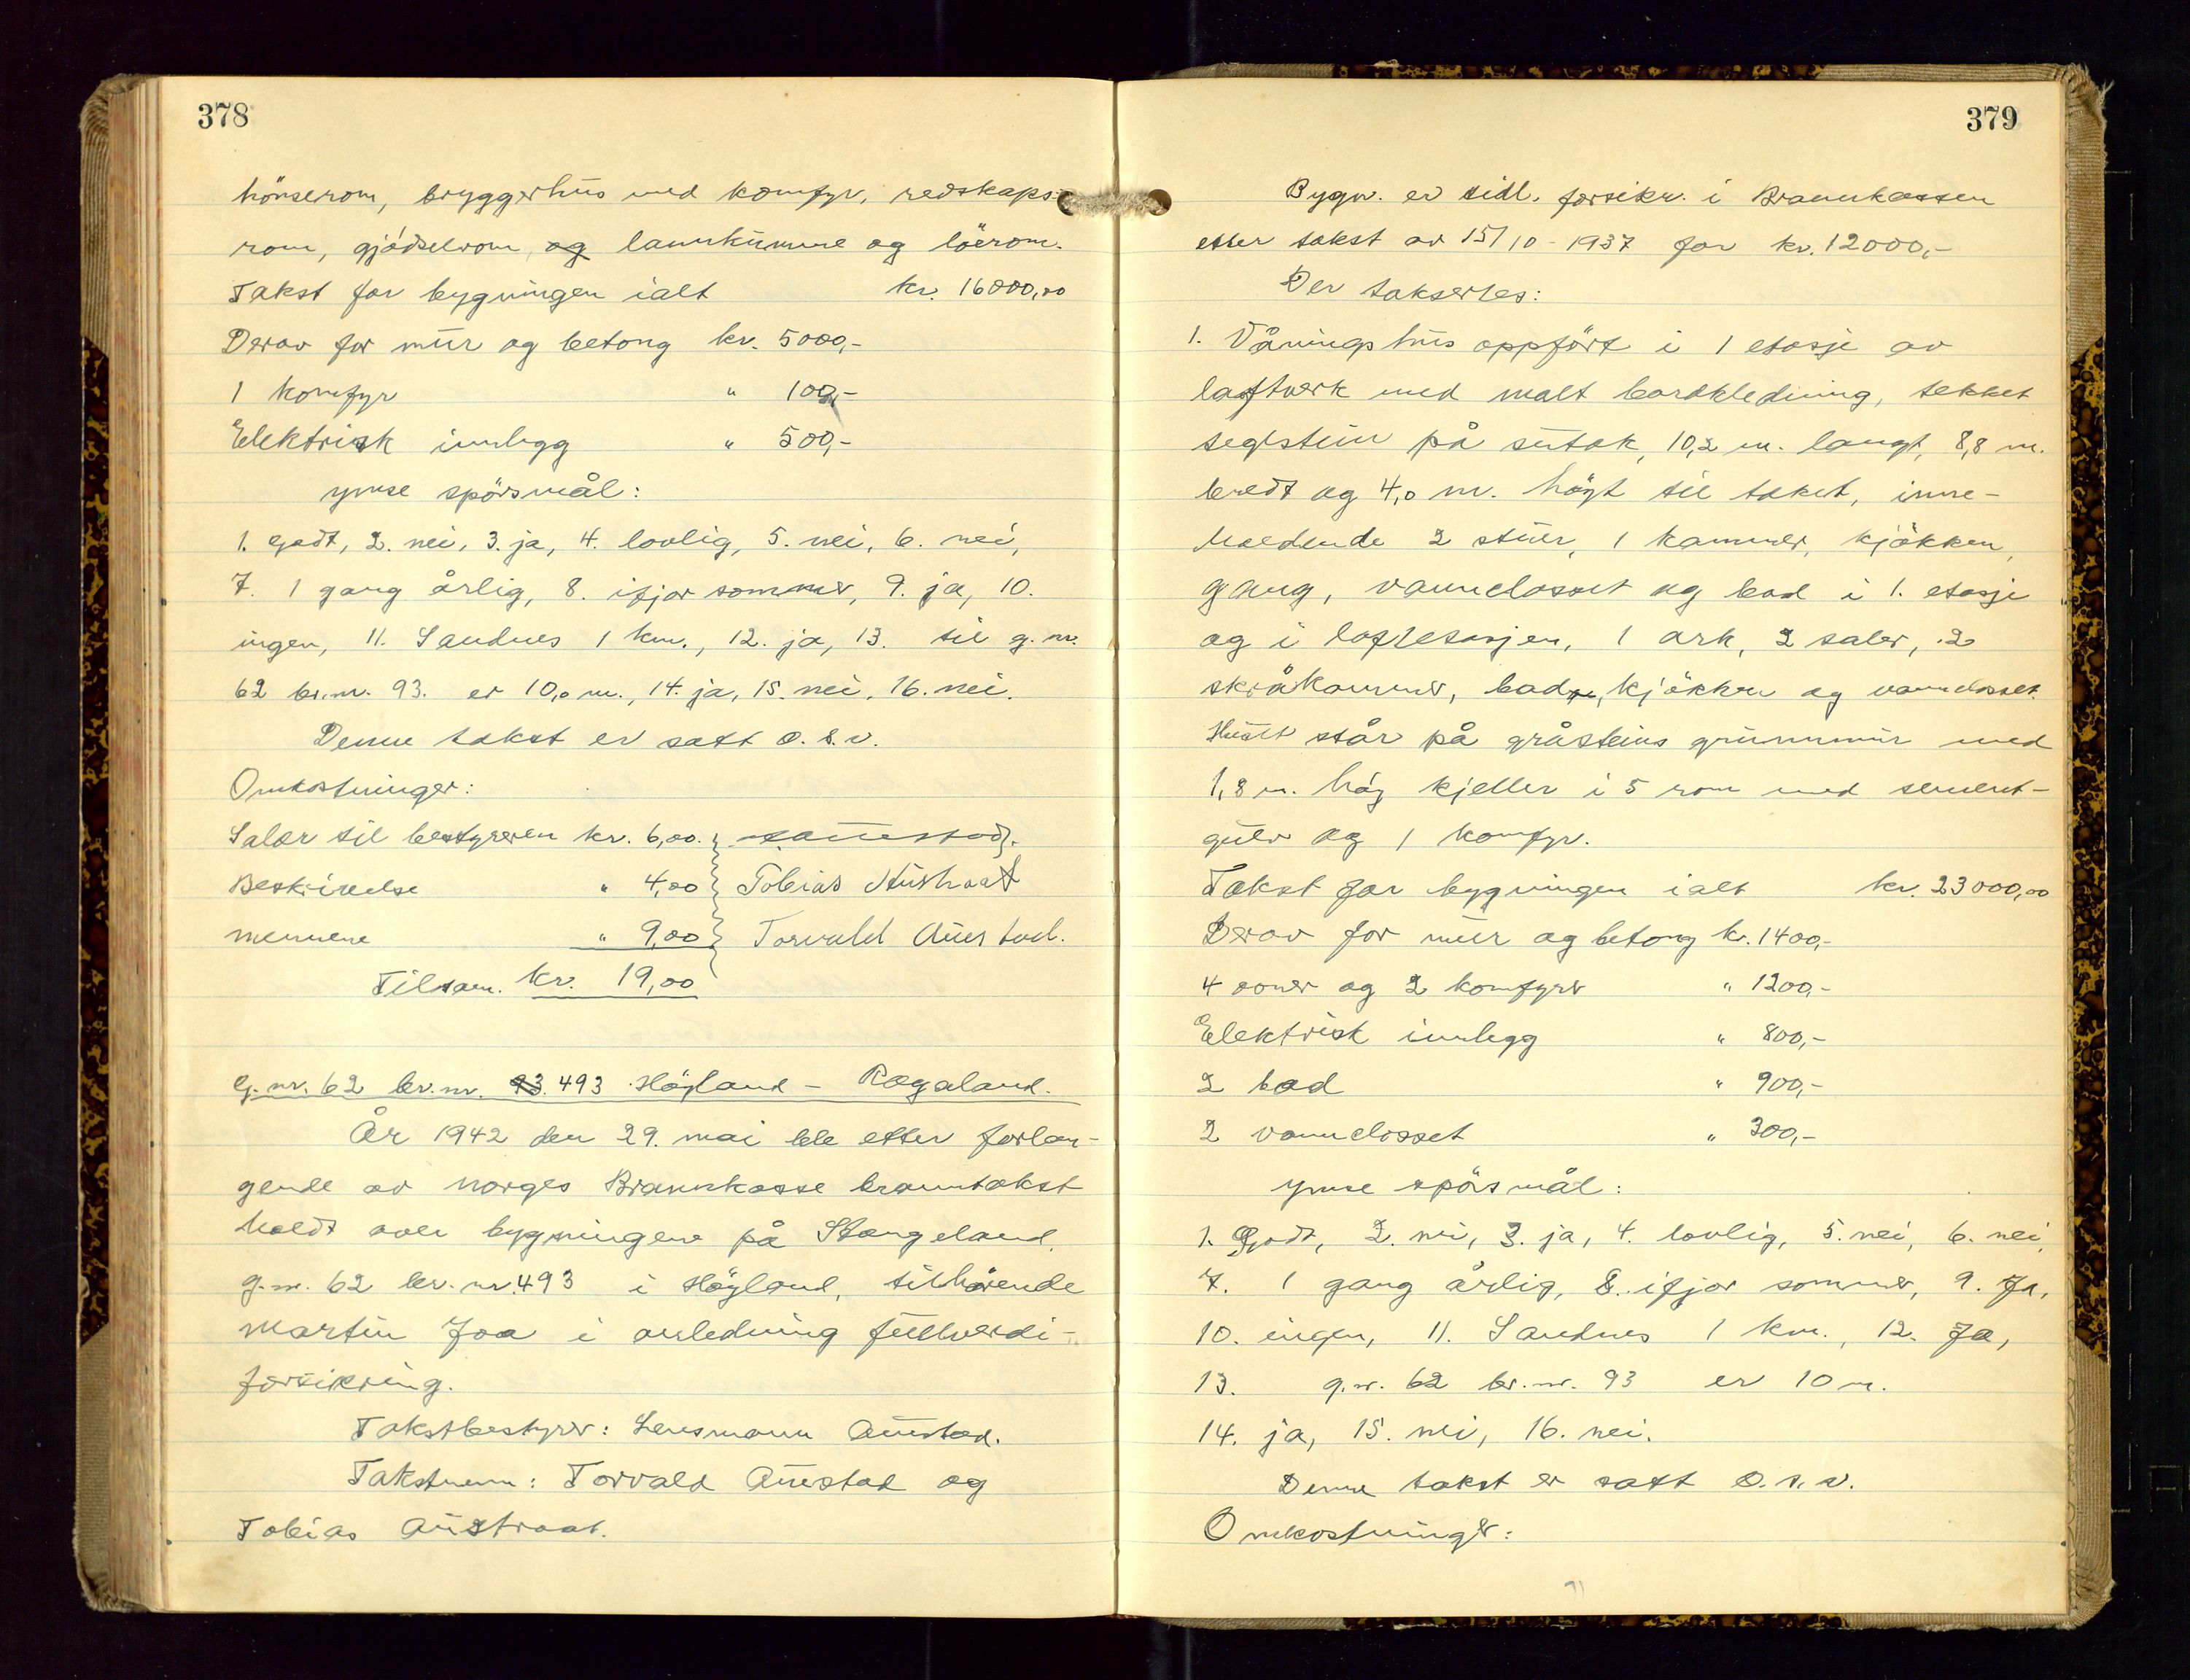 378
hönserom, bryggerhus med komfyr, redskaps-
rom, gjödselrom, og lannkumme og löerom.
Takst for bygningen ialt kr. 16000,00
Derav for mur og betong kr. 5000,-
1 komfyr " 100,-
Elektrisk innlegg " 500,-
Ymse spörsmål:
1. Godt, 2. nei, 3. ja, 4. lovlig, 5. nei, 6. nei,
7. 1 gang årlig, 8. ifjor sommer, 9. ja, 10.
ingen, 11. Sandnes 1 km., 12. ja, 13. til g. nr.
62 br.nr. 93. er 10,0 m., 14. ja, 15. nei, 16. nei.
Denne takst er satt o.s.v.
Omkostninger:
Salar til bestyreren kr. 6,00.
Beskrivelse " 4,00 Tobias Austraat
mennene " 9,00 Torvald Auestad.
Tilsam. kr. 19,00
G.nr. 62 br.nr. 93. 493 Högland - Rogaland.
År 1942 den 29. mai ble etter forlan-
gende av Norges Brannkasse branntakst
holdt over bygningene på Stangeland,
g.nr. 62 br.nr. 493 i Högland, tilhörende
Martin Joa i anledning fullverdi-
forsikring.
Takstbestyrer: Lensmann Auestad.
Takstmenn: Torvald Auestad og
Tobias Austraat.
379
Bygn. er tidl. forsikr. i Brannkassen
etter takst av 15/10-1937 for kr. 12000,-
Der taksertes:
1. Våningshus oppfört i 1 etasje av
laftverk med malt bordkledning, tekket
teglstein på sutak, 10,2 m. langt, 8,8 m.
bredt og 4,0 m. högt til taket, inne-
holdende 2 stuer, 1 kammer, kjökken,
gang, vannclosset og bad i 1. etasje
og i loftetasjen, 1 ark, 2 saler, 2
skråkammer, bad, kjökken og vannclosset.
Huset står på gråsteins grunnmur med
1,8 m. höy kjeller i 5 rom med sement-
gulv og 1 komfyr.
Takst for bygningen ialt kr. 23000,00
Derav for mur og betong kr. 1400,-
4 ovner og 2 komfyrer " 1200,-
Elektrisk innlegg " 800,-
2 bad " 900,-
2 vannclosset " 300,-
Ymse spörsmål:
1. Godt, 2. nei, 3. ja, 4. lovlig, 5. nei, 6. nei,
7. 1 gang årlig, 8. ifjor sommer, 9. Ja,
10. ingen, 11. Sandnes 1 km., 12. Ja,
13. g.nr. 62 br.nr. 93 er 10 m.
14. ja, 15. nei, 16. nei.
Denne takst er satt o.s.v.
Omkostninger: